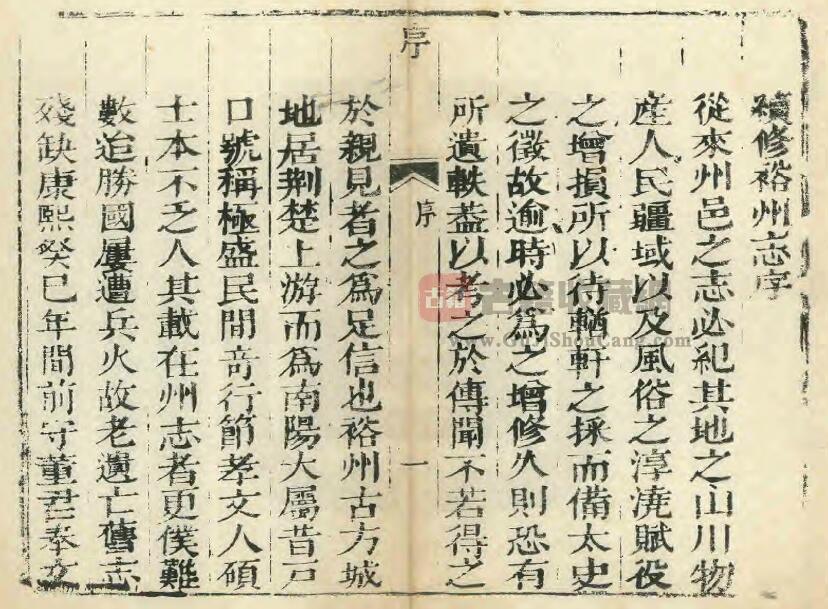 續修裕州志序
從來州邑之志必紀其地之山川物
産人民疆域以及風俗之淳澆賦役
之增損所以待輶軒之採而備太史
之徵故逾時必爲之增修久則恐有
所遺軼葢以考之於傳聞不若得之
序
序
一
於親見者之爲足信也裕州古方城
地居荆楚上游而爲南陽大屬昔戸
口號稱極盛民間奇行節孝文人碩
士本不乏人其載在州志者更僕難
數迨勝國屢遭兵火故老遺亡舊志
殘缺康熙癸巳年間前守董君奉文
古籍收藏網
www.GuJiShouCang.com